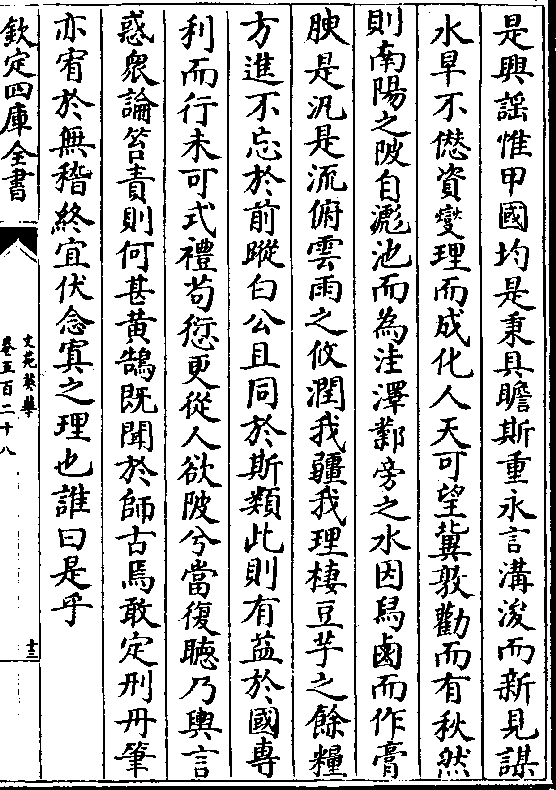 是興謡惟甲國均是秉具瞻斯重永言溝浚而新見謀
水旱不僽資變理而成化人天可望冀敦勸而有秋然
則南陽之陂自滮池而為洼澤鄴旁之水因舄鹵而作膏
腴是汎是流俯雲雨之攸潤我疆我理棲豆芋之餘糧
方進不忘於前蹤白公且同於斯類此則有益於國專
利而行未可式禮苟愆更從人欲陂兮當復聴乃輿言
惑衆論笞責則何甚黄鵠既聞於師古焉敢定刑丹筆
亦宥於無稽終宜伏念寘之理也誰曰是乎
欽定四庫全書
文苑英華
卷五百二十八
十三